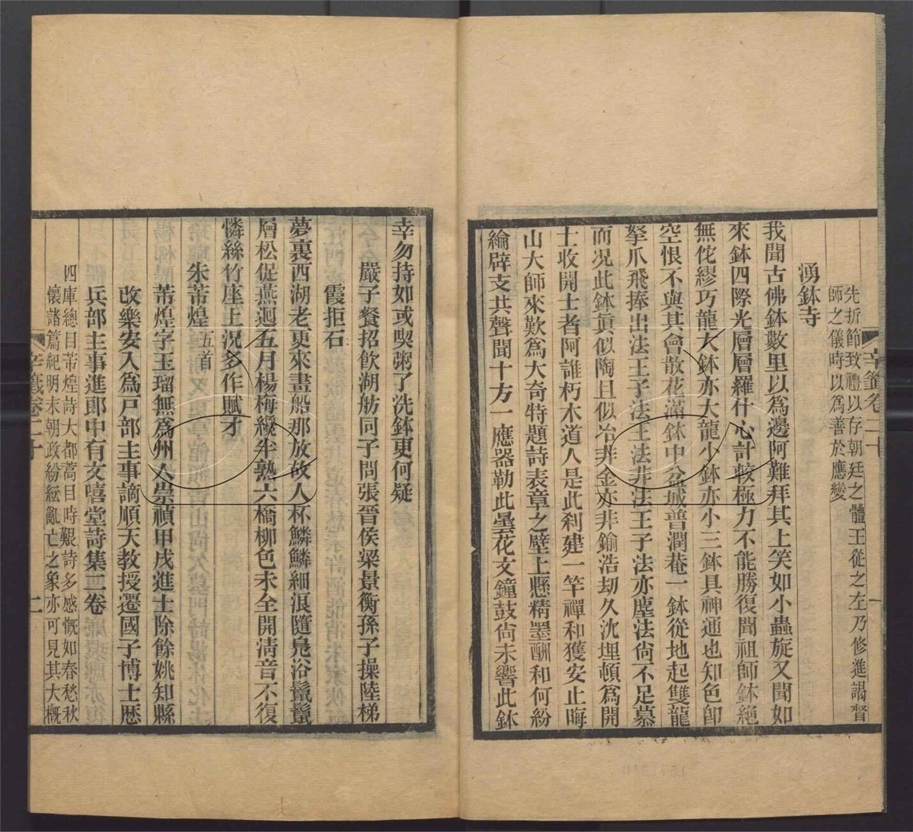 先折節致禮以存朝廷之體王從之左乃修進謁督
師之儀時以為善於應變
湧鉢寺
我聞古佛鉢數里以為邊阿難拜其上笑如小蟲旋又聞如
來鉢四際光層層羅什心計較極力不能勝復聞祖師鉢絕
無佗繆巧龍大鉢亦大龍小鉢亦小三鉢具神通也知色卽
空恨不與其會散花滿鉢中盆城普潤菴一鉢從地起雙龍
拏爪飛捧出法王子法王法非法王子法亦塵法尙不足慕
而况此鉢眞似陶且似冶非金亦非鍮浩刼久沈埋頓為開
士收開士者阿誰朽木道人是此刹建一竿禪和獲安止晦
山大師來歎為大奇特題詩表章之壁上懸精墨酬和何紛
綸辟支共聲聞十方一應器勒此曇花文鐘鼓尙未響此鉢
辛籤卷二十
一
幸勿持如或喫粥了洗鉢更何疑
嚴子餐招飲湖舫同子問張晉侯梁景衡孫子操陸梯
霞拒石
夢裏西湖老更來畫船那放故人杯鱗鱗細浪隨鳧浴鬣鬣
層松促燕迴五月楊梅纔半熟六橋柳色未全開淸音不復
憐絲竹座上況多作賦才
朱芾煌 五首
芾煌字玉瑠無為州人崇禎甲戌進士除餘姚知縣
改樂安入為戸部主事謫順天教授遷國子博士歴
兵部主事進郎中有文嘻堂詩集二卷
四庫總目芾煌詩大都蒿目時艱詩多感慨如春愁秋
懷諸篇紀明末朝政紛紜亂亡之象亦可見其大槪
辛籤卷二十
二